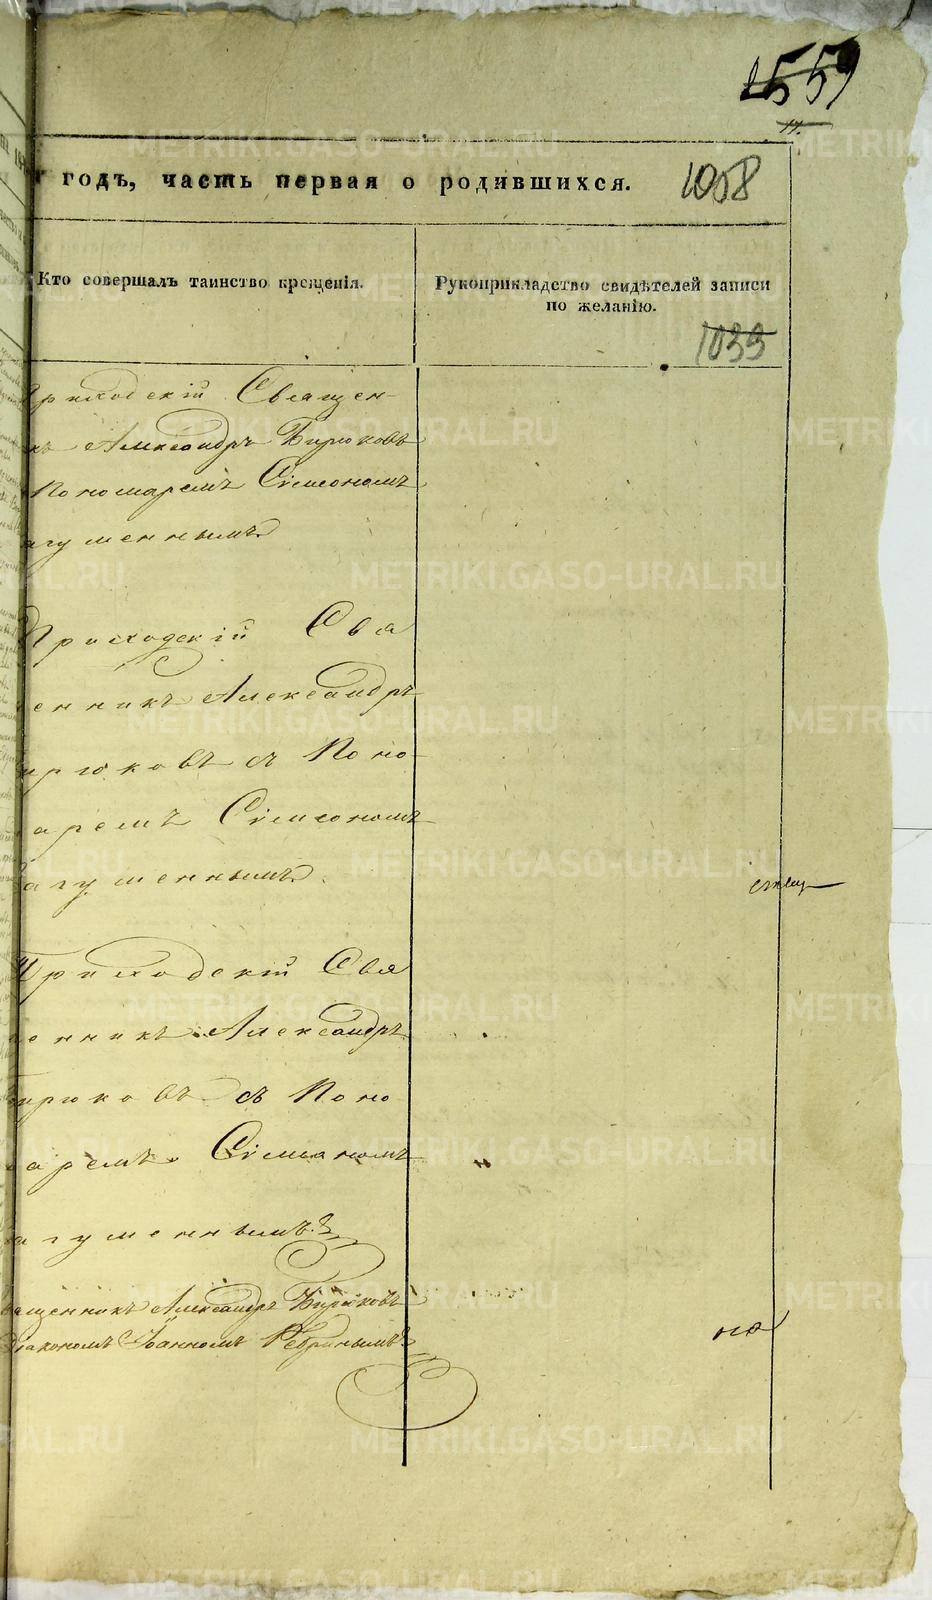 2559
17.
годъ, часть первая о родившихся.
1058
Кто совершалъ таинство крещенія.
Рукоприкладство свидѣтелей записи
по желанію.
1033
Приходскій Священ-
къ Александръ Бирюковъ
Пономаремъ Сімеономъ
агуменнымъ
Приходскій Свя
енникъ Александръ
ирюковъ съ Поно-
аремъ Сімеономъ
агуменнымъ.
Приходскій Свя
енникъ Александръ
ирюковъ съ Поно
аремъ Сімеономъ
агуменнымъ.
ященникъ Александръ Бирюковъ
діакономъ Іоанномъ Ребринымъ
METRIKI.GASO-URAL.RU